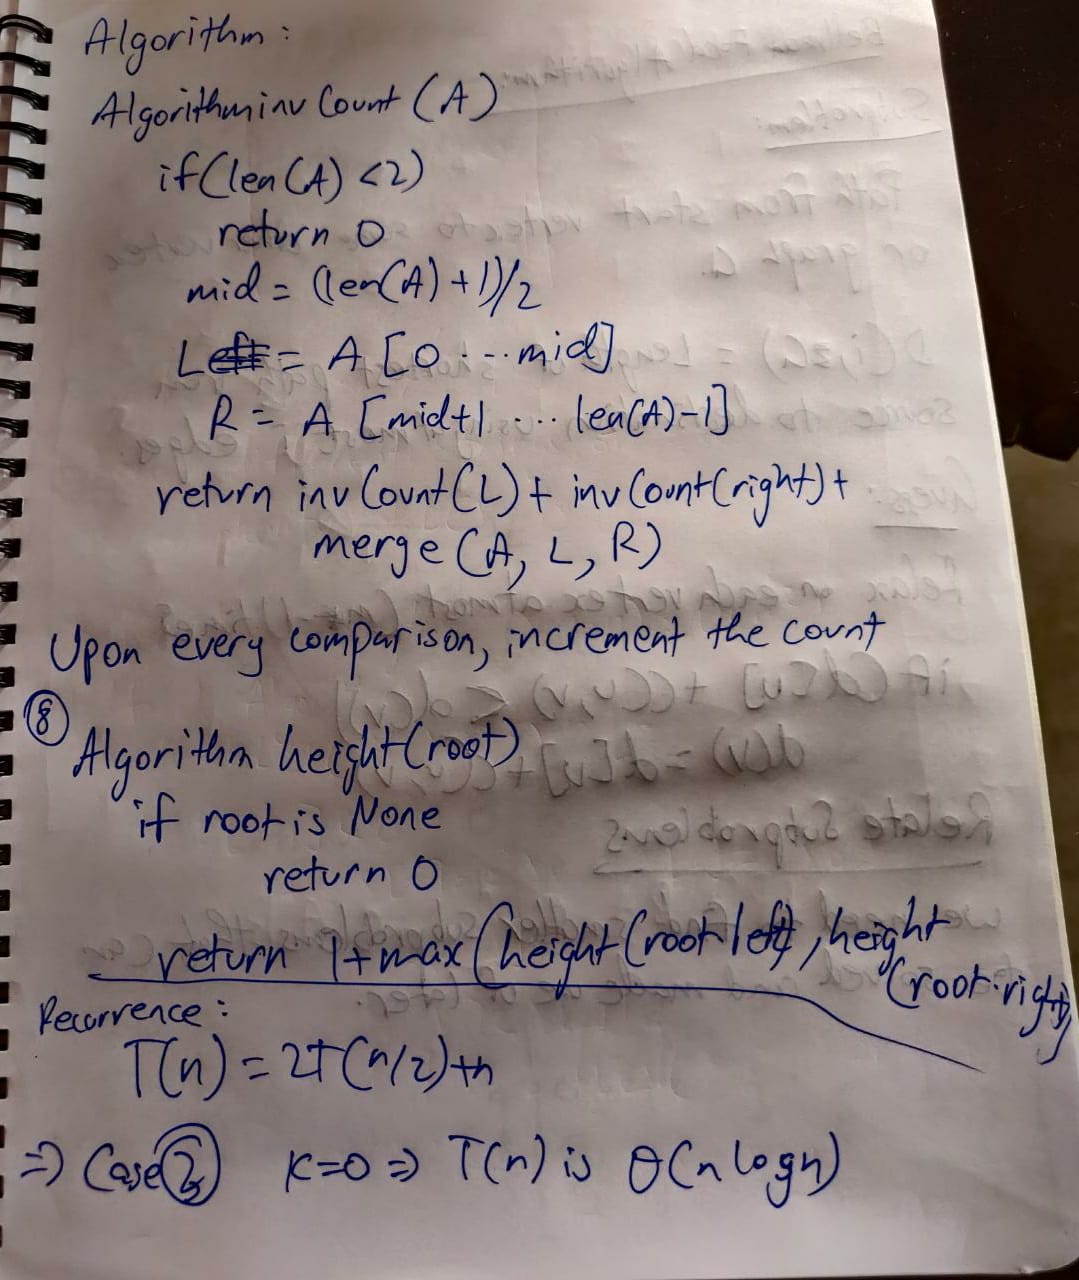 Algorithm:
Algorithm inv Count (A)
if (len (A) < 2)
return 0
mid = (len(A) + 1)/2
L = A [0 ... mid]
R = A [mid+1 ... len(A)-1]
return inv Count(L) + inv Count(right) +
merge (A, L, R)
Upon every comparison, increment the count
⑧
Algorithm height(root)
if root is None
return 0
return 1+max(height(root.left), height
(root.right)
Recurrence:
T(n) = 2T(n/2)+n
=> Case 2, K=0 => T(n) is θ(n log n)